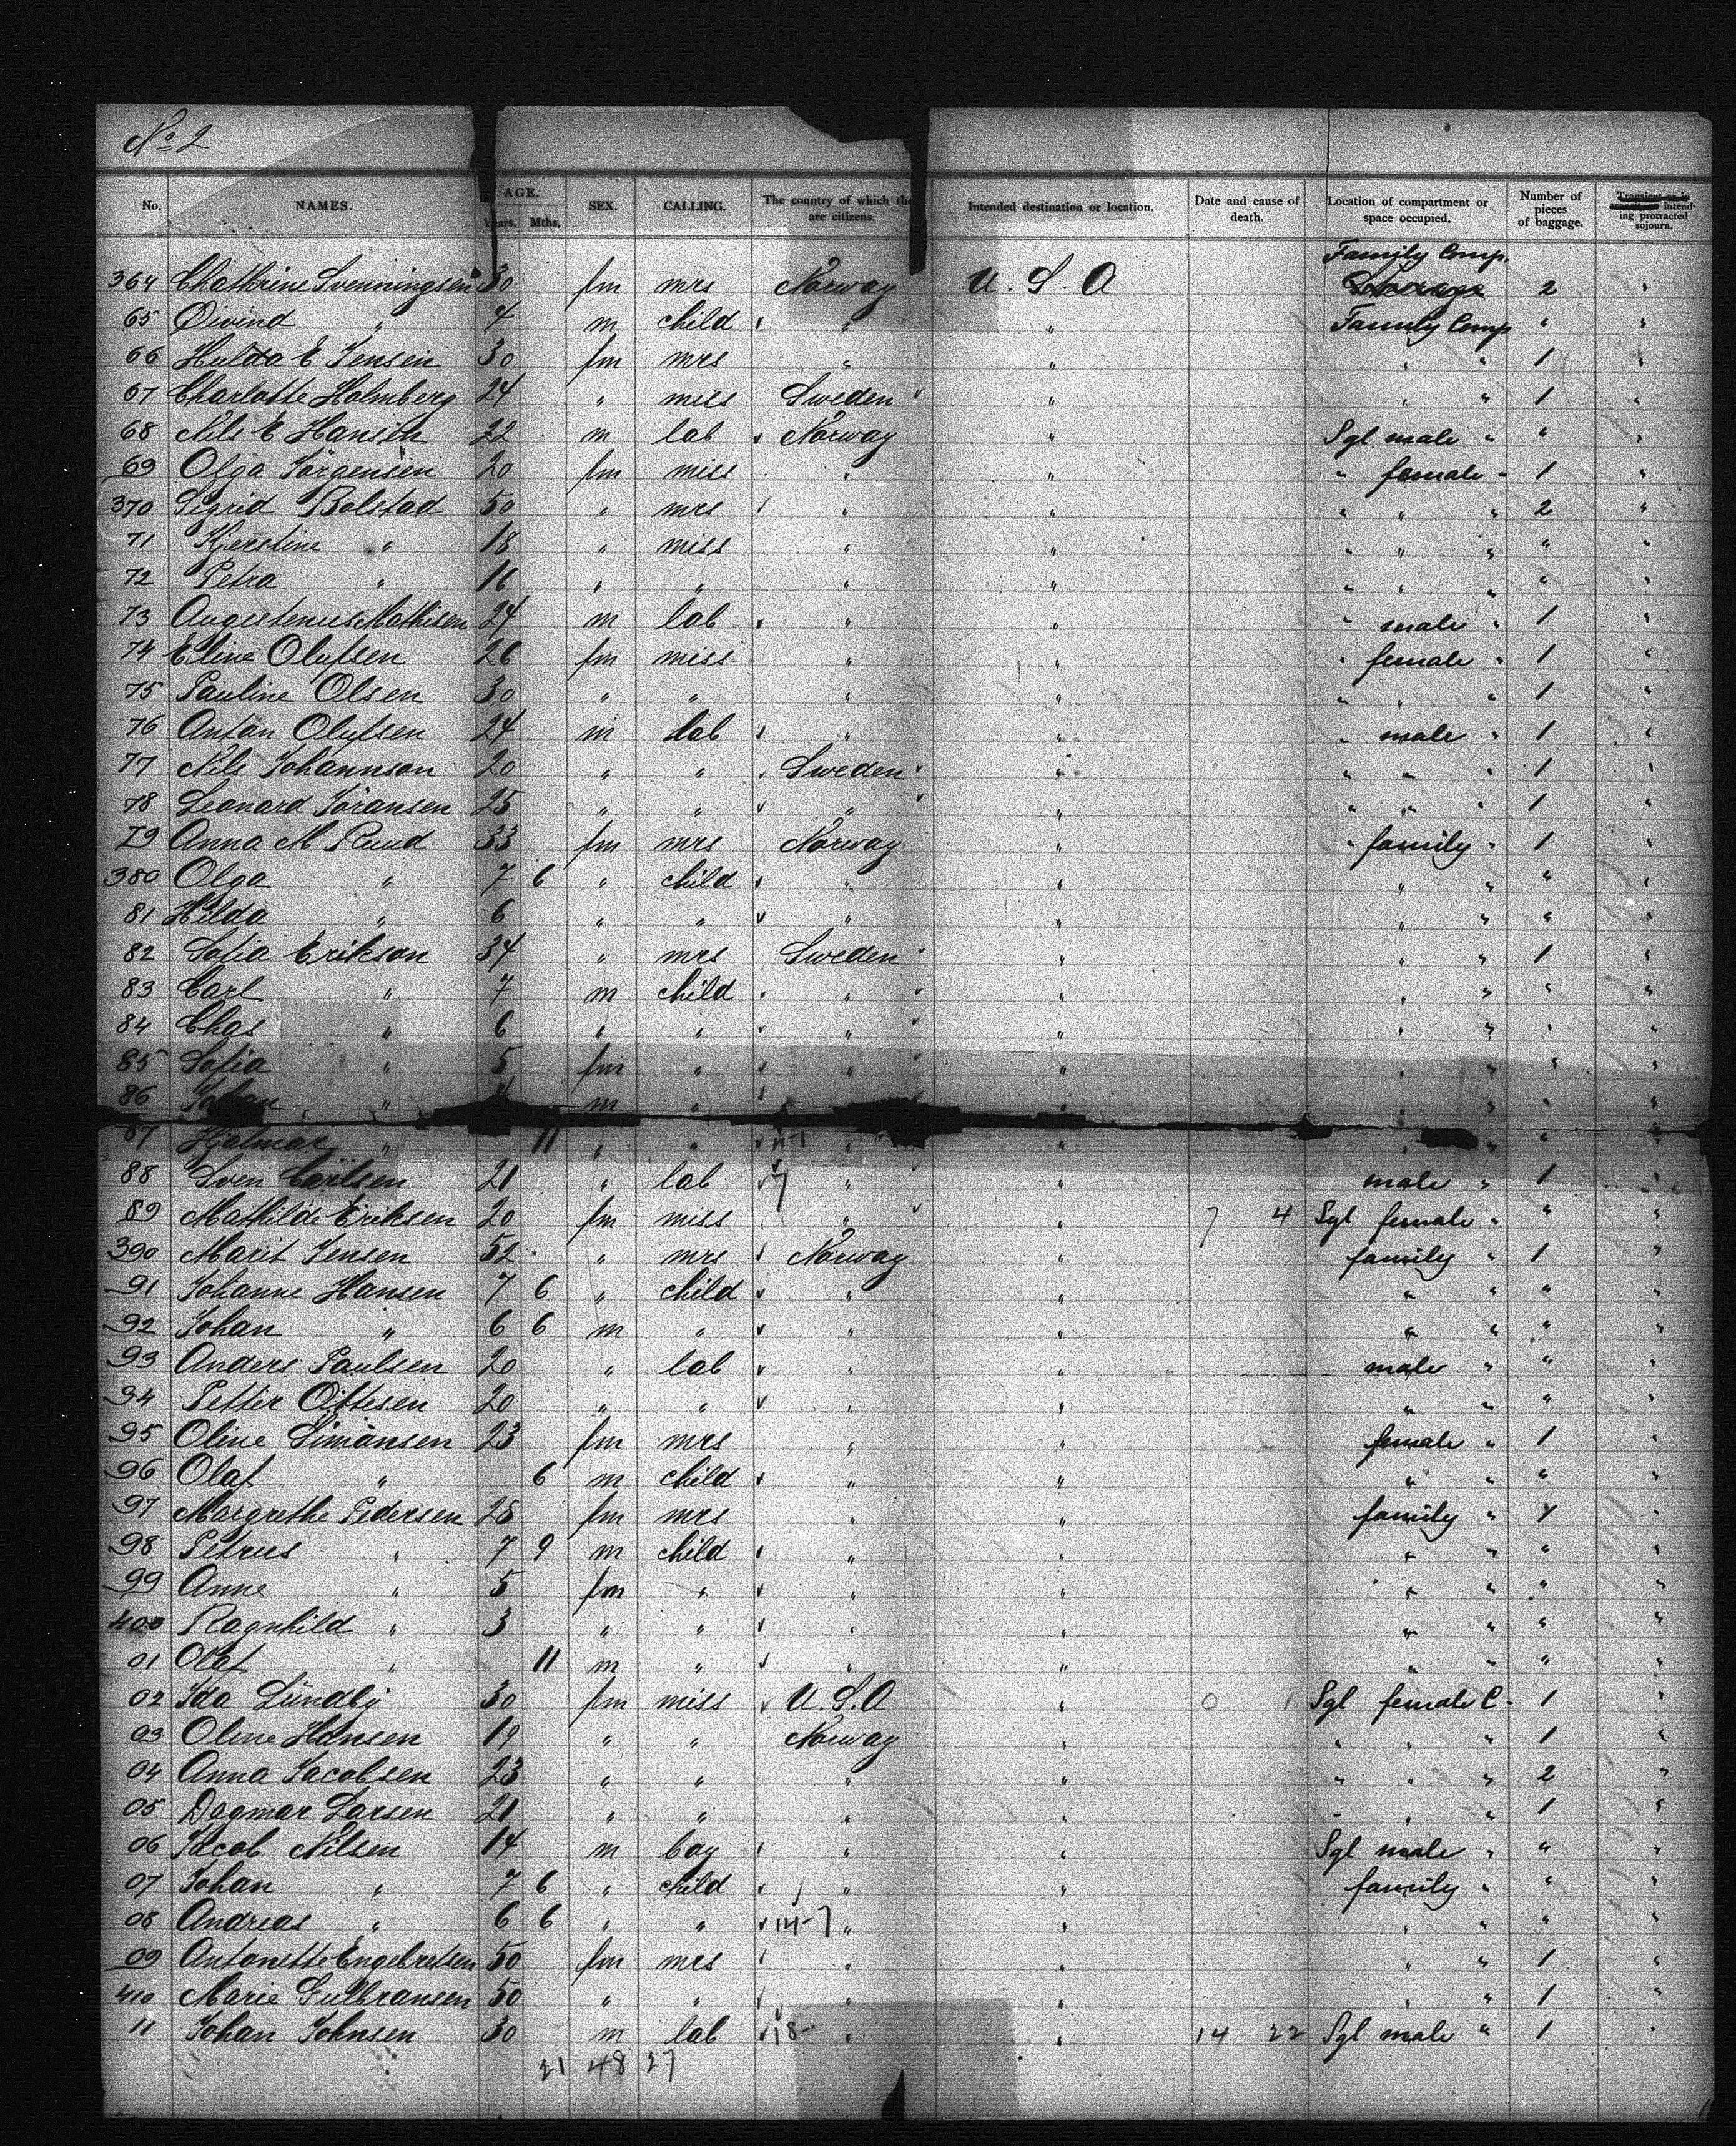 No 2
No. NAMES. AGE. Years. Mths. SEX. CALLING. The country of which the are citizens. Intended destination or location. Date and cause of death. Location of compartment or space occupied. Number of pieces of baggage. intend-ing protracted sojourn.
Family Comp.
364 Chathrine Svenningsen 30 fm mrs Norway U. S. A 2 "
65 Øivind " 4 m child " " Family Comp " "
66 Hulda E Jensen 30 fm mrs " " " " 1 "
67 Charlotte Holmberg 24 " miss Sweden " " " 1 "
68 Nils E Hansen 22 m lab Norway " Sgl male " " "
69 Olga Jørgensen 20 fm miss " " " female " 1 "
370 Sigrid Bolstad 50 " mrs " " " " " 2 "
71 Kjerstine " 18 " miss " " " " " " "
72 Petra " 16 " " " " " " " " "
73 Augistenus Mathisen 24 m lab " " " male " 1 "
74 Eline Olufsen 26 fm miss " " " female " 1 "
75 Pauline Olsen 30 " " " " " " " 1 "
76 Anton Olufsen 24 m lab " " " male " 1 "
77 Nils Johannson 20 " " Sweden " " " " 1 "
78 Leonard Joransen 25 " " " " " " " 1 "
79 Anna M Ruud 33 fm mrs Norway " " family " 1 "
380 Olga " 7 6 " child " " " " " "
81 Hilda " 6 " " " " " " " "
82 Sofia Erikson 34 " mrs Sweden " " " 1 "
83 Carl " 7 m child " " " " " "
84 Chas " 6 " " " " " " " "
85 Sofia " 5 fm " " " " " " "
86 Johan " m " " " " " "
87 Hjalmar " 11 " " " " " "
88 Sven Carlsen 21 " lab 7 " " male " 1 "
89 Mathilde Eriksen 20 fm miss " " 7 4 Sgl female " " "
390 Marit Jensen 52 " mrs Norway " family " 1 "
91 Johanne Hansen 7 6 " child " " " " " "
92 Johan " 6 6 m " " " " " " "
93 Anders Paulsen 20 " lab " " male " " "
94 Petter Ottesen 20 " " " " " " " "
95 Oline Simonsen 23 fm mrs " " female " 1 "
96 Olaf " 6 m child " " " " " "
97 Margrethe Pedersen 28 fm mrs " " family " "
98 Petrus " 7 9 m child " " " " " "
99 Anne " 5 fm " " " " " " "
400 Ragnhild " 3 " " " " " " " "
01 Olaf " 11 m " " " " " " "
02 Ida Lundby 30 fm miss U. S. A " 0 1 Sgl female C. 1 "
03 Oline Hansen 19 " " Norway " " " " 1 "
04 Anna Jacobsen 23 " " " " " " " 2 "
05 Dagmar Larsen 21 " " " " " " " 1 "
06 Jacob Nilsen 14 m boy " " Sgl male " " "
07 Johan " 7 6 " child " " family " " "
08 Andreas " 6 6 " " 14-7 " " " " "
09 Antonette Engebretsen 50 fm mrs " " " " 1 "
410 Marie Gulbransen 50 " " " " " " 1 "
11 Johan Johnsen 30 m lab 18- " " 14 22 Sgl male " 1 "
21 48 27